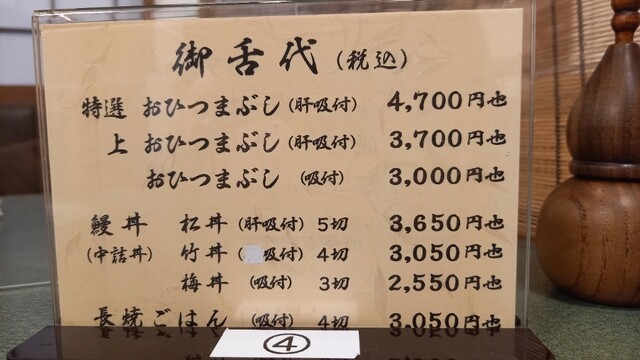 御舌代(税込)
特選 おひつまぶし(肝吸付) 4,700円也
上 おひつまぶし(肝吸付) 3,700円也
おひつまぶし (吸付) 3,000円也
鰻丼 松丼 (肝吸付) 5切 3,650円也
(中詰丼) 竹丼 (吸付) 4切 3,050円也
梅丼 (吸付) 3切 2,550円也
長焼ごはん (吸付) 4切 3,050円也
④